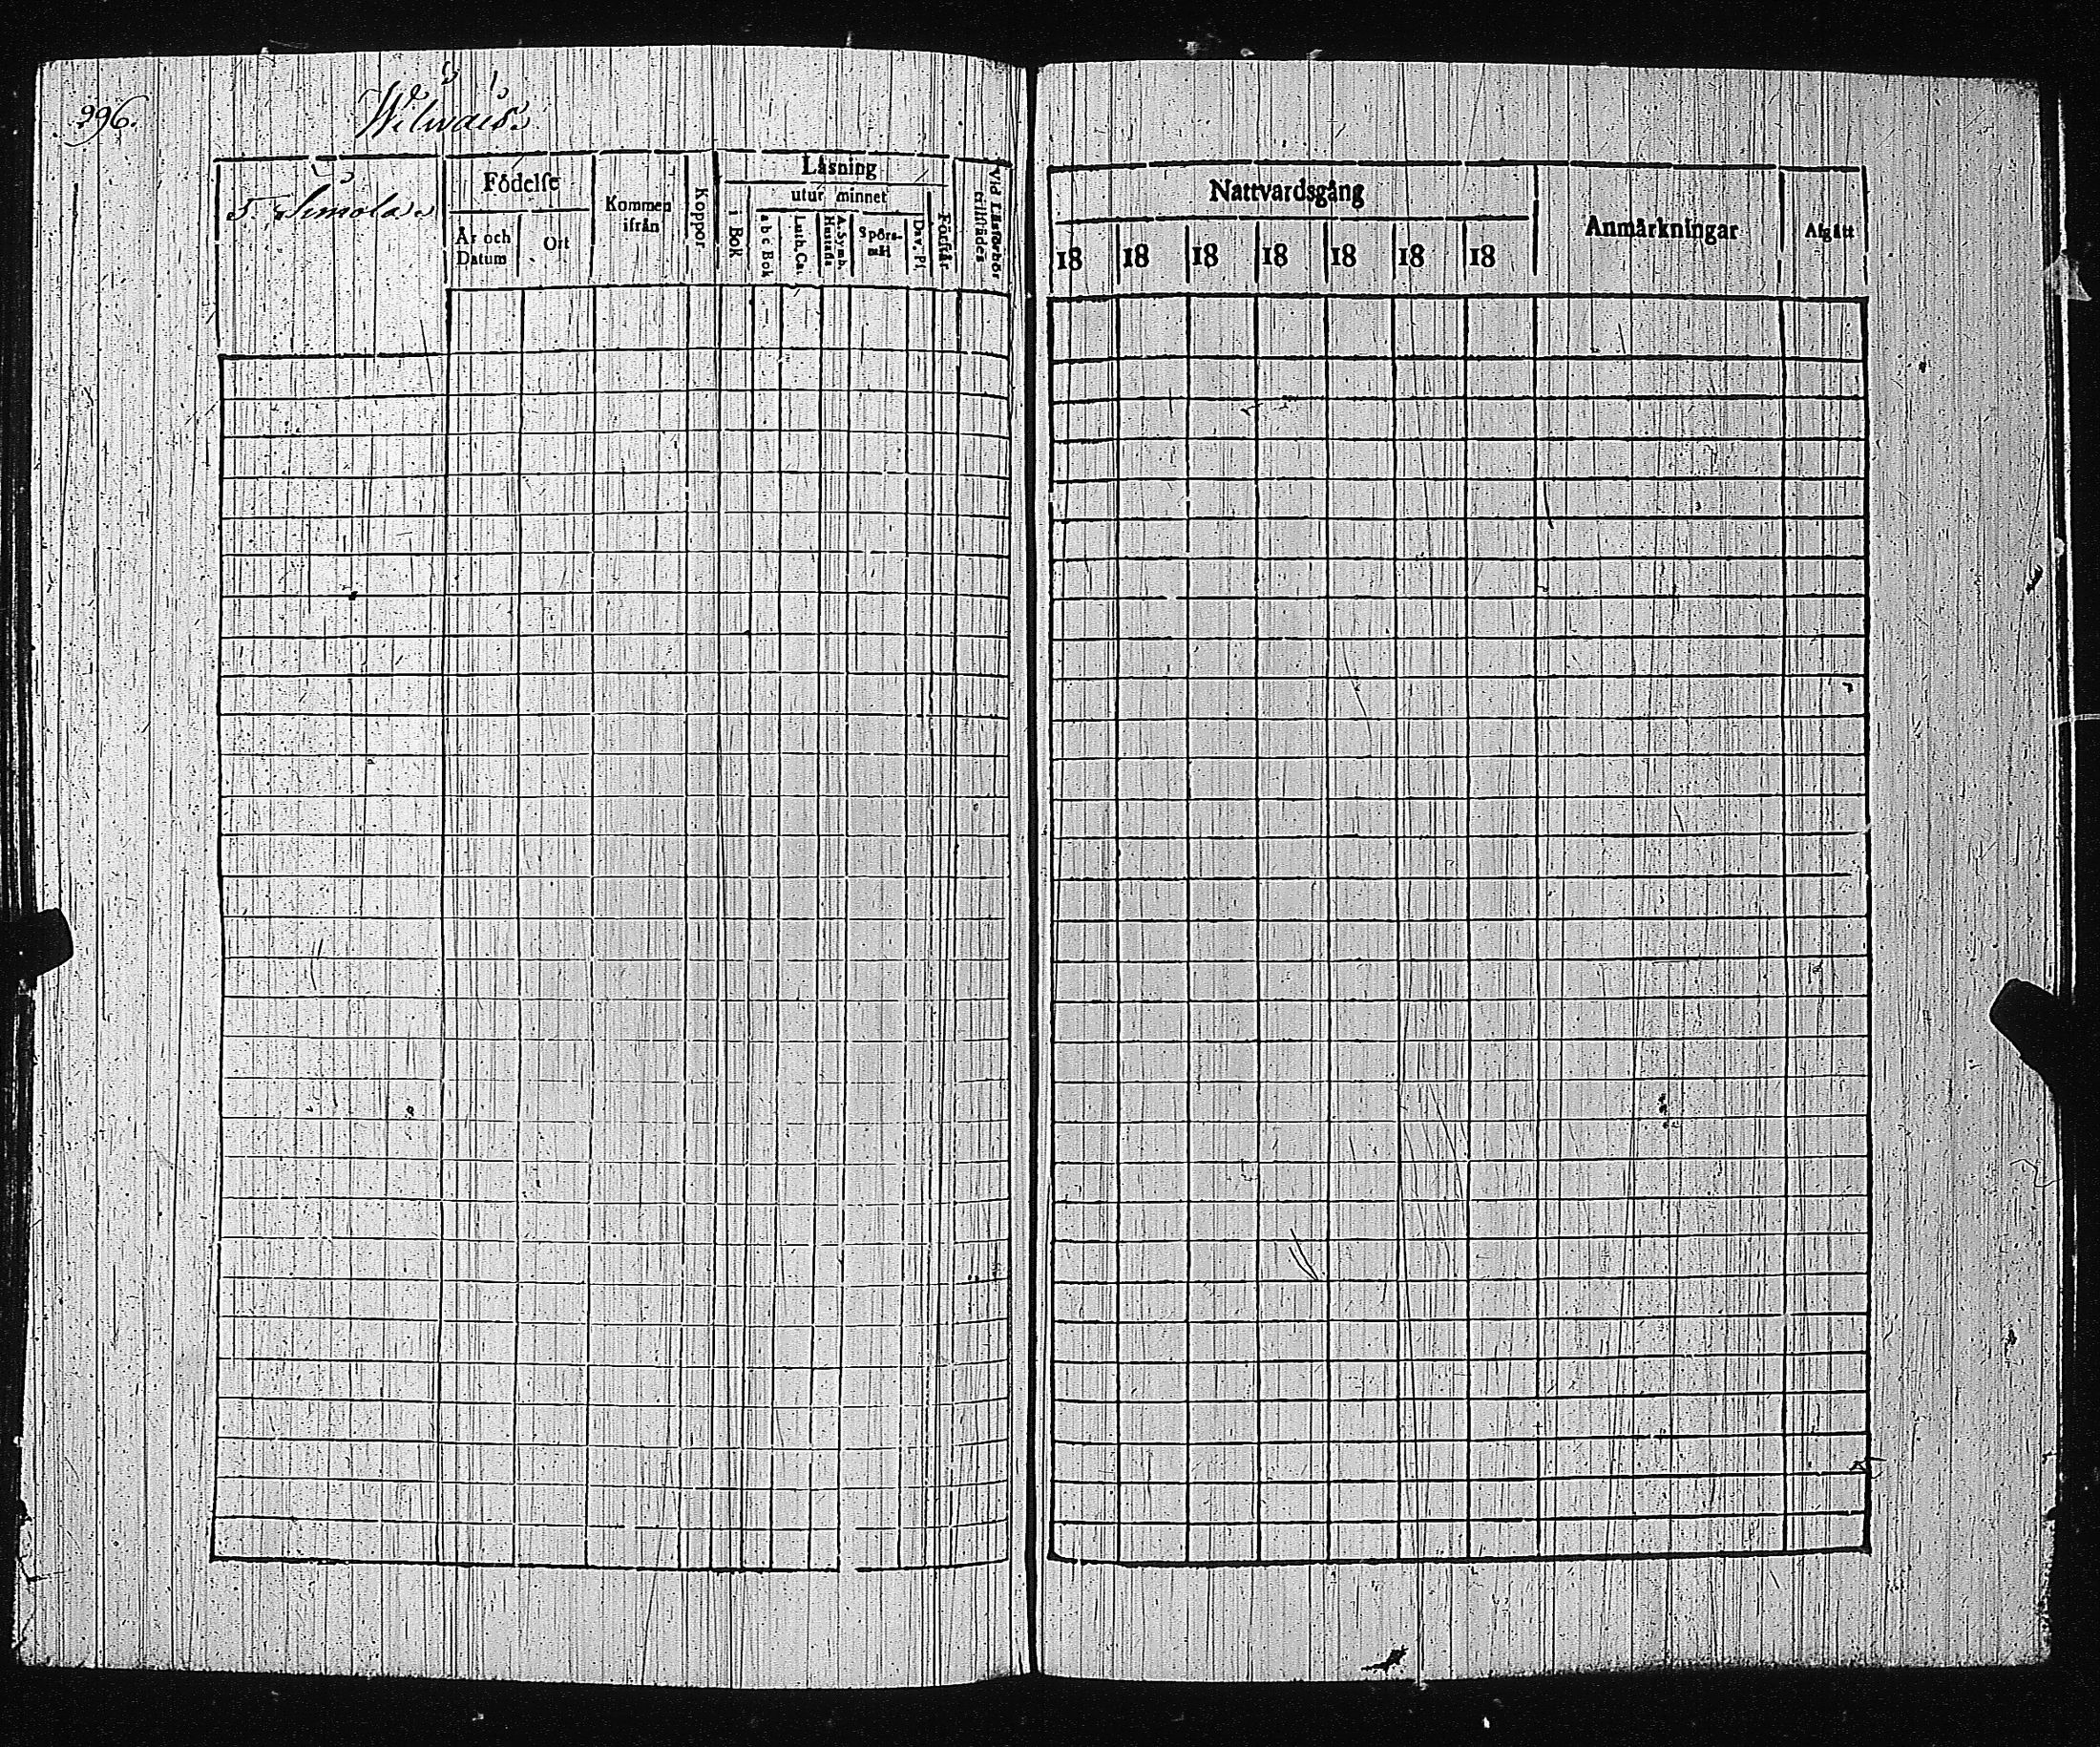 296.
5. Simola
Födelse
År och Datum
Ort
Kommen ifrån
Koppor
Läsning
utur minnet
i Bok
a b c Bok
Luth. Ca.
A. Symb. Hustafla
Spörs-mål
Dav. Ps
Förstår
Vid Läsförhör tillstädes
Nattvardsgång
18 18 18 18 18 18 18
Anmärkningar
Afgått